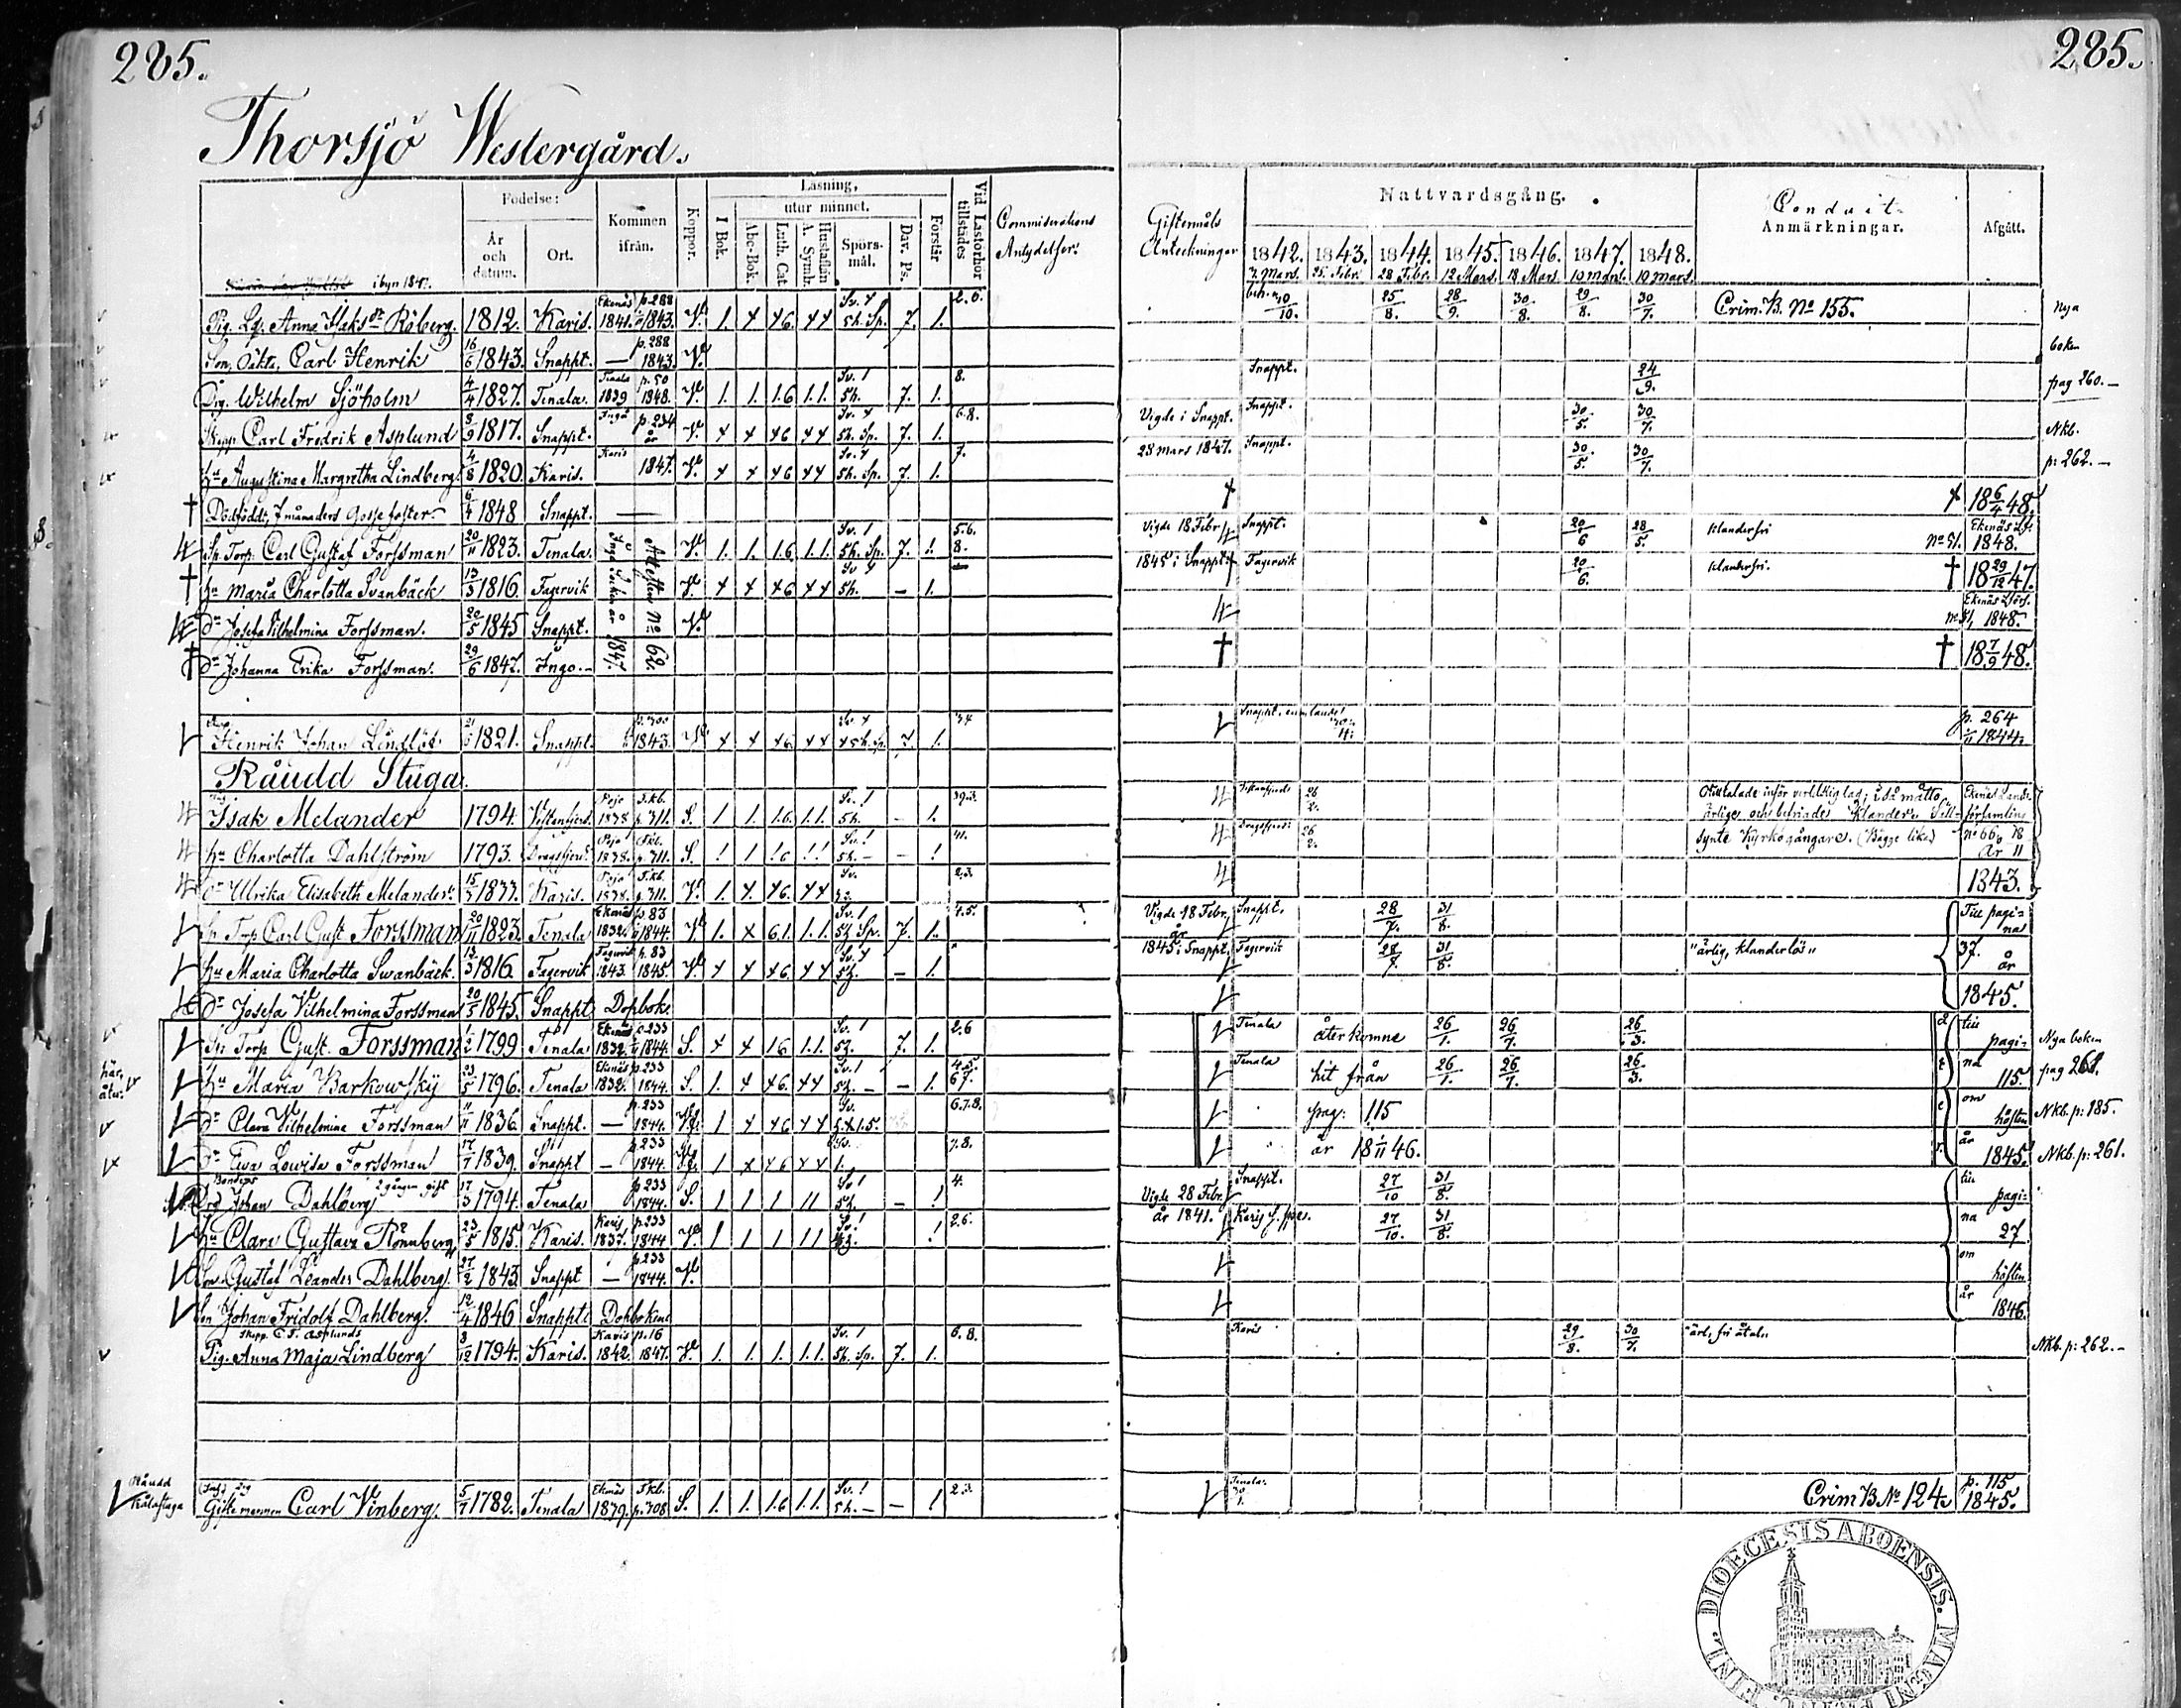 285. 285.
Thorsjö Westergård.
Födelse: Kommen ifrån. Koppor. Läsning, utur minnet. I Bok. Abc-Bok. Luth. Cat. Hustaflan A. Symb. Spörsmål. Dav. Ps. Förstår Vid Läsförhör tillstädes Commisurations Antydelser. Giftermåls Anteckningar Nattvardsgång. Conduit. Anmärkningar. Afgått.
År och datum. Ort. 1842. 1843. 1844. 1845. 1846. 1847. 1848.
i byn 184 7 Mars. 25 Febr. 28 Febr. 12 Mars. 18 Mars. 10 Mars. 10 Mars.
Pig. Lg. Anna Isaksdr Röberg. 1812. Karis. Ekenäs 1841. p.288 1843. V. 1. x x6 xx Sv. x 5h. Sp. 7. 1. 2.6. 10/10. 25/8. 28/9. 30/8. 29/8. 30/7. Crim. B. No 155. Nya
Son, Oäkta, Carl Henrik 16/6 1843. Snappt. — p.288 1843. V. boken
Drg. Wilhelm Sjöholm 4/4 1827. Tenala. Tenala 1839 p.50 1848. V. 1. 1. 1.6 1.1. Sv. 1 5h. 7. 1. 8. Snappt. 24/9. pag 260.—
Skepp. Carl Fredrik Asplund 8/9 1817. Snappt. Ingå p.234 år V. x x x6 xx Sv. x 5h. Sp. 7. 1. 6.8. Vigde i Snappt. Snappt. 30/5. 30/7. Nkb.
hu Augustina Margretha Lindberg 4/8 1820. Karis. Karis 1847. V. x x x6 xx Sv. x 5h. Sp. 7. 1. 7. 28 mars 1847. Snappt. 30/5. 30/7. p: 262.—
† Dödfödde, 7 månaders Gosse foster — 6/4 1848 Snappt. — † 18 6/4 48.
Sp. Torp. Carl Gustaf Forssman 20/11 1823. Tenala. Ingå Socken år 1847. Attesten No 62. V. 1. 1. 1.6 1.1. Sv. 1 5h. Sp. 7. 1. 5.6. 8. Vigde 18 Febr. Snappt. 20/6 28/5. klanderfri No 51. Ekenäs Lf. 1848.
† hu Maria Charlotta Svanbäck 13/3 1816. Fagervik V. x x x6 xx Sv x 5h. — 1. 1845 i Snappt. Fagervik 20/6. klanderfri. † 18 29/12 47.
dr Josefa Vilhelmina Forssman. 20/5 1845 Snappt. V. No 51, Ekenäs Lförs. 1848.
† dr Johanna Erika Forssman. 29/6 1847. Ingo.— † † 18 7/9 48.
Henrik Johan Lindlöf 21/6 1821. Snappt. p.300 1843. V. x x x6. xx Sv. x x5h. Sp. 7. 1. 34 Snappt. p. 264 1/11 1844.
Råudd Stuga.
Isak Melander 1794. Pojo 1838 T.kb. p.711. S. 1 1. 1.6. 1.1. Sv. 1 5h. — 1. 26/2. ärlige och befriade Klander. Ekenäs Lands-församling
hu Charlotta Dahlström 1793. Dragsfjerd. Pojo 1838. Tkb. p.711. S. 1 1 1.6 1.1 Sv. 1 5h. — — 1 41. Dragsfjerd: 26/2. synte Kyrkogångare. (Bägge like) No 66, 78 År 11
dr Ulrika Elisabeth Melander. 15/3 1833. Karis. Pojo 1838. T.kb. p.711. V. 1. x. x6. xx Sv. 2.3. 1843.
Sp. Torp Carl Gust. Forssman 20/11 1823. Tenala Ekenäs 1832. p.83 1844. V. 1. x 6.1. 1.1. Sv. 1 5h Sp. 7. 1. 4.5. Vigde 18 Febr. år Snappt. 28/7. 31/8. Till pagi-na
hu Maria Charlotta Swanbäck. 13/3 1816. Fagervik Fagervik 1843. p.83 1845. V. x x x6. xx Sv. x 5h. — 1. 1845 i Snappt. Fagervik 28/7. 31/8. "ärlig, klanderlös" 37. år
dr Josefa Vilhelmina Forssman 20/5 1845. Snappt. Dopbok. 1845.
Sp. Torp Gust. Forssman 1/2 1799. Tenala Ekenäs 1832. p.233 1844. S. x x 16 1.1. Sv. 1 5h. 7. 1. 2.6 Tenala återkomne 26/1. 26/7. 26/3. till pagi- Nya boken
här, hu Maria Barkowsky 23/5 1796. Tenala Ekenäs 1832. p.233 1844. S. 1. x x6. xx Sv. 1 5h. — — 1. 4.5. 67. Tenala hit från 26/1. 26/7. 26/3. na 115. pag 261.
dr Clara Vilhelmina Forssman 11/11 1836. Snappt. — p.233 1844. 1 x x6 xx Sv. 6.7.8. pag: 115 om hösten Nkb. p: 185.
dr Eva Lowisa Forssman 17/7 1839. Snappt — p.233 1844. 1 x x6 xx Sv. 7.8. år 18 1/11 46. år 1845. Nkb. p: 261.
Bondens 2 gången gift
Johan Dahlberg 17/3 1794. Tenala p.233 1844. S. 1 1 1 11 Sv 1 5h. — 1 4. Vigde 28 Febr. Snappt. 27/10 31/8. till pagi-
hu Clara Gustava Rönnberg 23/5 1815. Karis. Karis 1837. p.233 1844 V. 1 1 1 11 Sv. 1 5h. 1 2.6. år 1841. Karis 27/10. 31/8. na 27
Son Gustaf Leander Dahlberg. 27/2 1843 Snappt — p.233 1844. V. om hösten
Son Johan Fridolf Dahlberg. 12/4 1846 Snappt. Dopboken år 1846.
Skepp. C. F. Asplunds
Pig. Anna Maja Lindberg 8/12 1794. Karis. Karis 1842. p.16 1847. V. 1. 1. 1. 1.1. Sv. 1 5h. Sp. 7. 1. 6.8. Karis 29/8. 30/7. ärl. fri åtal.. Nkb. p: 262.—
Råudd
Giftemannen Carl Vinberg. 5/7 1782. Tenala Ekenäs 1839. T.kb. p.708 S. 1. 1. 1.6 1.1. Sv. 1 5h. — — 1 2.3. Tenala. 30/1. Crim B No 124. p. 115 1845.
DIOECESIS ABOENSIS. MAGNI